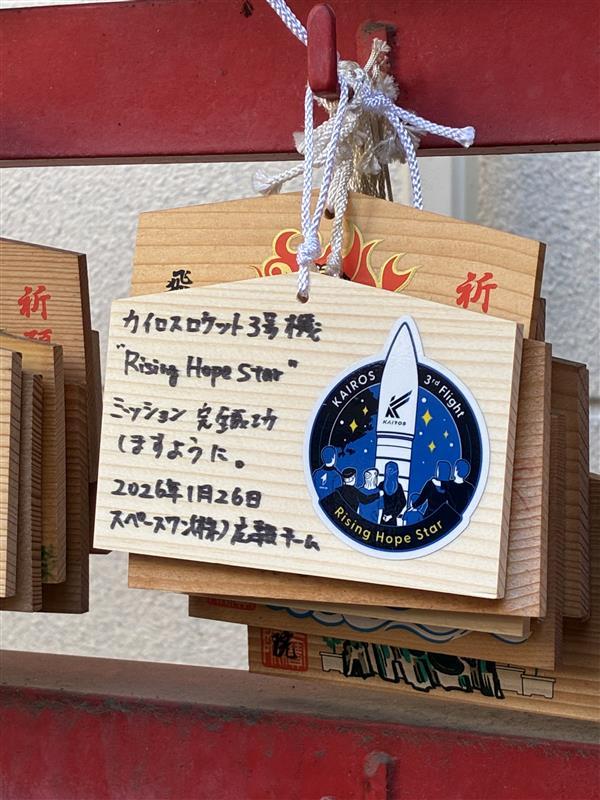 カイロスロケット3号機
"Rising Hope Star"
ミッション 完全成功
しますように。
2026年1月26日
スペースワン(株)応援チーム
KAIROS 3rd Flight
KAIROS
Rising Hope Star
飛
祈
祈
願
院